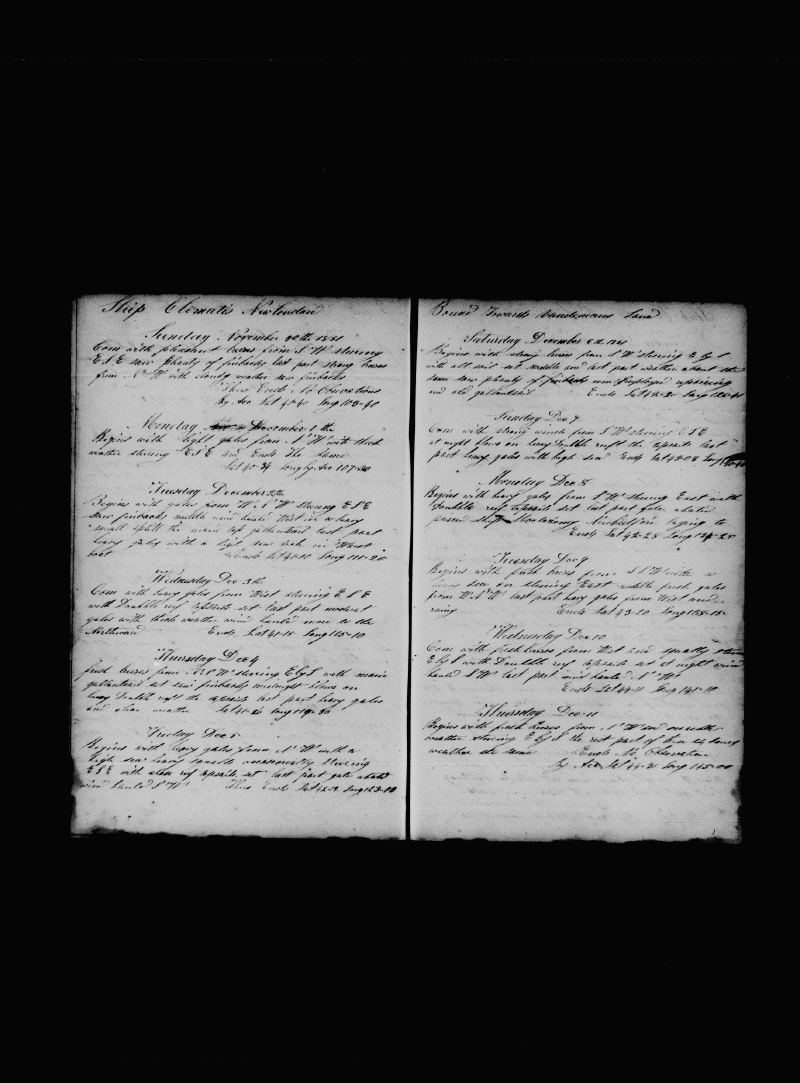 Ship Clematis New London
Sunday November 30th 1851
Com with pleasant breses from S W stearing
E S E saw plenty of finbacks last part strong breses
from N W with cloudy weather saw finbacks
Thus Ends No Observations
By Acc Lat 40-40 Long 103-40
Monday December 1 the
Begins with light gales from N W with thick
weather stearing E S E and Ends the same
Lat 40-34 Long by Acc 107-30
Tuesday December 2th
Begins with gales from W N W stearing E S E
saw finbacks middle wind hauld West in a heavy
squall split the main top gallantsail last part
heavy gales with a high sea in
boat Ends Lat 41-12 Long 111-20
Wednesday Dec 3th
Com with heavy gales from West stearing E S E
with Doubble reef topsails set last part moderat
gales with thick weather wind hauld more to the
Northward Ends Lat 41-15 Long 115-10
Thursday Dec 4
fresh breses from N N W stearing E by S with main
gallantsail set saw finbacks midnight blows on
heavy Doubble reeft the topsails last part heavy gales
and clear weather Lat 41-26 Long 119-30
Friday Dec 5
Begins with heavy gales from N W with a
high sea heavy squalls occasionaly stearing
E S E with close reef topsails set last part gale abated
wind hauld S W Thus Ends Lat 42-12 Long 123-10
Bound Towards Vandemans Land
Saturday December 6th 1851
Begins with strong breses from S W stearing E by S
with all sail set middle and last part weather about the
same saw plenty of finbacks men employed repairing
and old gallantsail Ends Lat 42-20 Long 126-40
Sunday Dec 7
Com with strong winds from S W stearing E S E
at night blows on heavy Doubble reeft the topsails last
part heavy gales with high sea Ends Lat 43-08 Long
Monday Dec 8
Begins with heavy gales from S W stearing East with
Doubble reef topsails set last part gale abated
passed ship
Ends Lat 42-25 Long 134-25
Tuesday Dec 9
Begins with fresh breses from S S W with a
sea on stearing East middle fresh gales
from W N W last part heavy gales from West and
raing Ends Lat 43-20 Long 138-15
Wednesday Dec 10
Com with fresh breses from West and squally stearing
E by S with Doubble reef topsails set at night wind
hauld S W last part wind hauld N W
Ends Lat 44-11 Long 141-10
Thursday Dec 11
Begins with fresh breses from N W and
weather stearing E by S the rest part of these 24 hours
weather the same Ends No Observation
by Acc Lat 44-30 Long 145-00